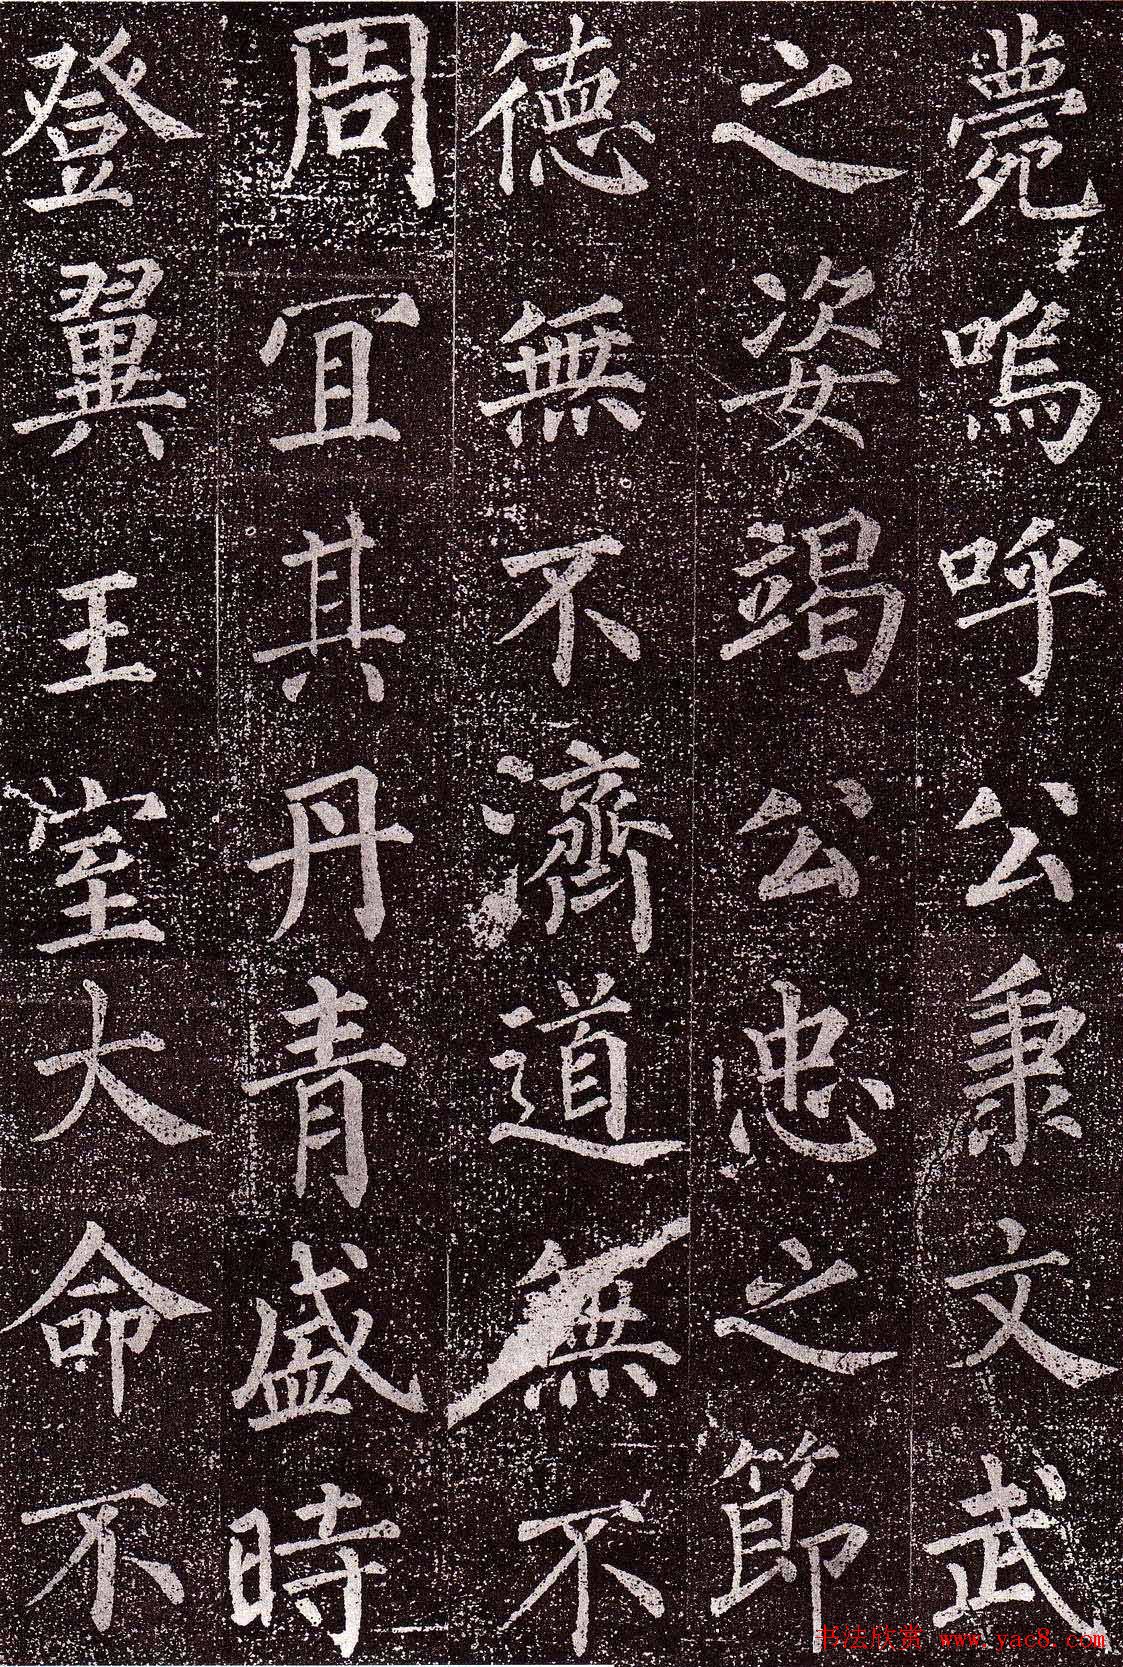 薨嗚呼公秉文武
之姿竭公忠之節
德無不濟道無不
周宜其丹青盛時
登翼王室大命不
书法欣赏 www.yac8.com